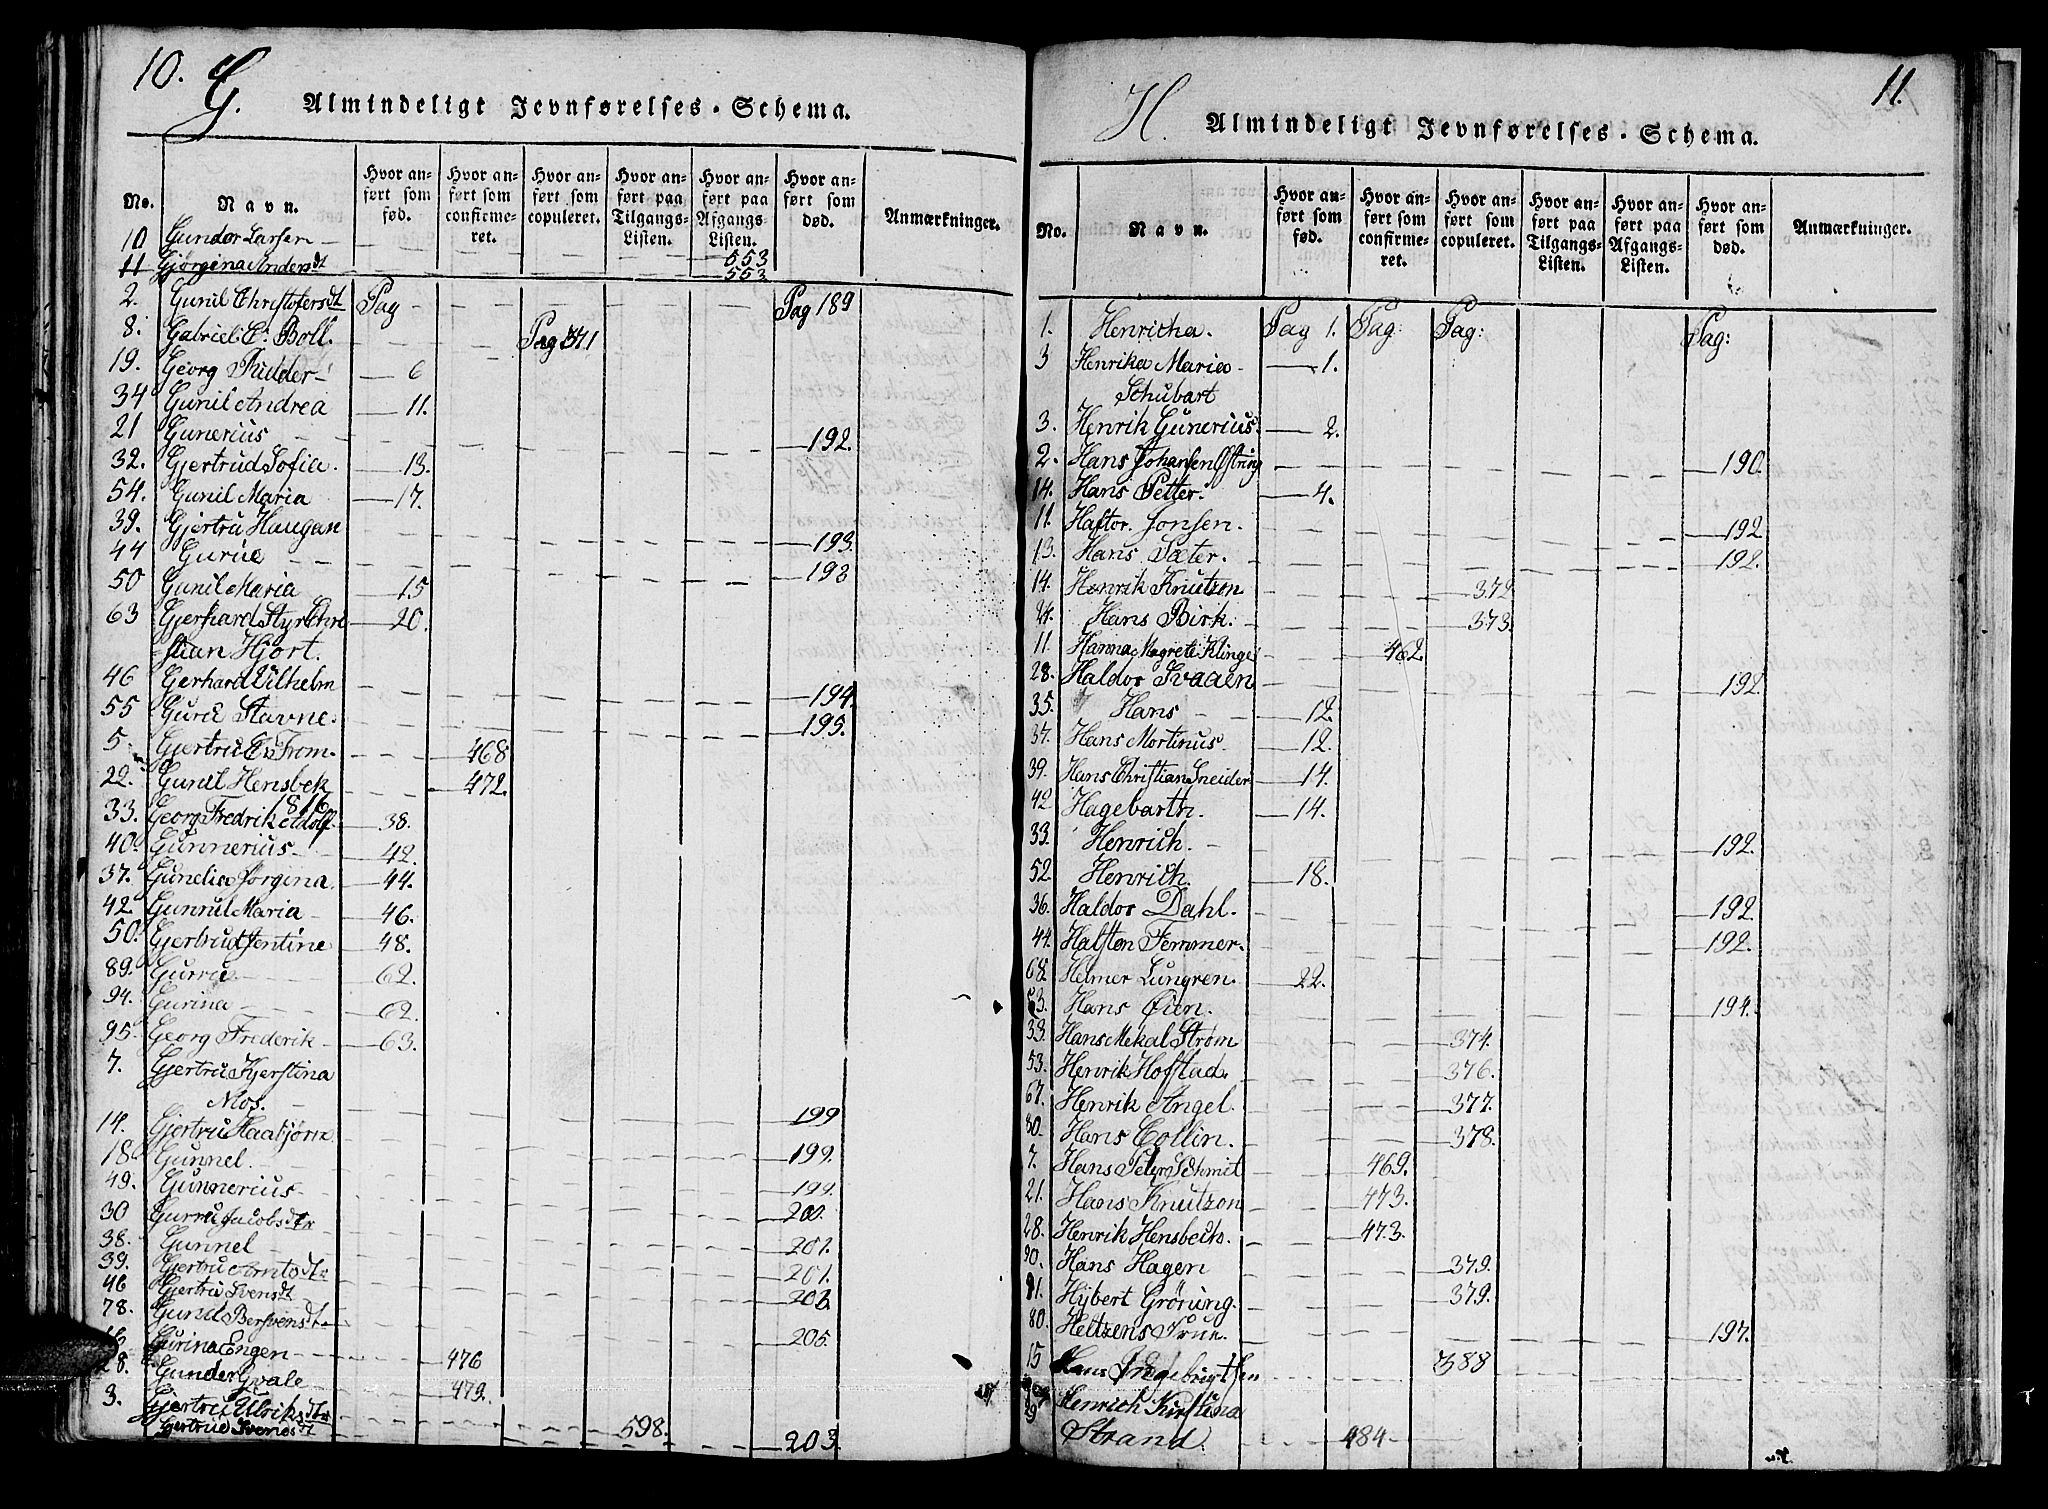 10. G. Almindeligt Jevnførelses-Schema.
No. Navn. Hvor anført som fød. Hvor anført som confirmeret. Hvor anført som copuleret. Hvor anført paa Tilgangs-Listen. Hvor anført paa Afgangs-Listen. Hvor anført som død. Anmærkninger.
10 Gunder Larsen 553
11 Gjørgina Andersdt 553
2. Gunil Christofersdt Pag Pag 189
8. Gabriel C. Boll. Pag 371
19. Georg Ridder 6
34 Gunil Andrea 11.
21 Gunerius 192.
32. Gjertrud Sofia. 13.
54. Gunil Maria 17.
39. Gjertru Haugan 193.
44 Gurue 193
50 Gunil Maria 15
63 Gjerhard Styr Chri 20.
stian Hjort.
46 Gerhard Vilhelm 194.
55 Gurie Stavne. 195.
5 Gjertru E. From. 468
22. Gunil Hensbek 472.
1816
33. Georg Fredrik Adolf 38.
40. Gunnerius 42.
37. Gunelia Jørgina. 44.
42. Gunrul Maria 46.
50. Gjertrud Jentine 48.
89. Gurru 62.
94. Gurina 62.
95. Georg Frederik 63.
7. Gjertru Kjerstina
Mos. 199
14. Gjertru Haabjørn 199.
18 Gunnel. 199.
49. Gunnerius 200.
30 Gurru Jacobsdtr 201.
38. Gunnel 201.
39. Gjertru Arntsdtr 203.
46 Gjertru Svensdt
78. Gunil Bersvensdt. 205.
Gurina Engen 476
28. Gunder Gvale 479.
3. Gjertru Ulriksdtr 598.
Gjertrue Svensdt 203.
H. Almindeligt Jevnførelses-Schema. 11.
No. Navn. Hvor anført som fød. Hvor anført som confirmeret. Hvor anført som copuleret. Hvor anført paa Tilgangs-Listen. Hvor anført paa Afgangs-Listen. Hvor anført som død. Anmærkninger.
1. Henricha. Pag 1. Pag: Pag: Pag:
3 Henrika Maria 1.
Schubart
3. Henrik Gunerius. 2.
2. Hans Johansen Østring 190.
14. Hans Petter. 4.
11. Haftor Jonsen. 192
13. Hans Sæter. 192.
14. Henrik Knutzon 372
24. Hans Birk. 373.
11. Hanna Magrete Klinge 462.
28. Haldor Svaaen 192.
35. Hans 12.
37. Hans Mortinus 12.
39. Hans Christian Sneider 14.
42 Hagebarth. 14.
33. Henrich. 192.
52. Henrich. 18.
36. Haldor Dahl. 192.
44. Halsten Femmer. 192.
68. Helmer Lungren. 22.
53. Hans Øien. 194.
33. Hans Mekal Strøm 374.
53. Henrik Hofstad. 376.
67. Henrik Angel. 377.
30. Hans Collin. 378.
7. Hans Peter Schmit 469.
21. Hans Knutzon 473.
28. Henrik Hensbeck. 473.
90. Hans Hagen 379.
91. Hybert Grørung. 379.
80. Heltzens Frue. 197.
15 Hans Ingebrigtsen 388
29 Henrich Kirstina
Strand. 484